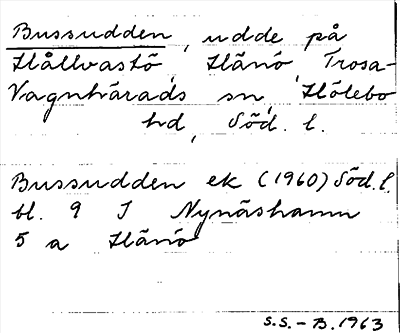 Bussudden, udde på
Hållvastö, Hånö, Trosa-
Vagnhärads sn, Hölebo
hd, Söd. l.
Bussudden ek (1960) Söd. l.
bl. 9 I Nynäshamn
5 a Hånö
S.S. - B. 1963